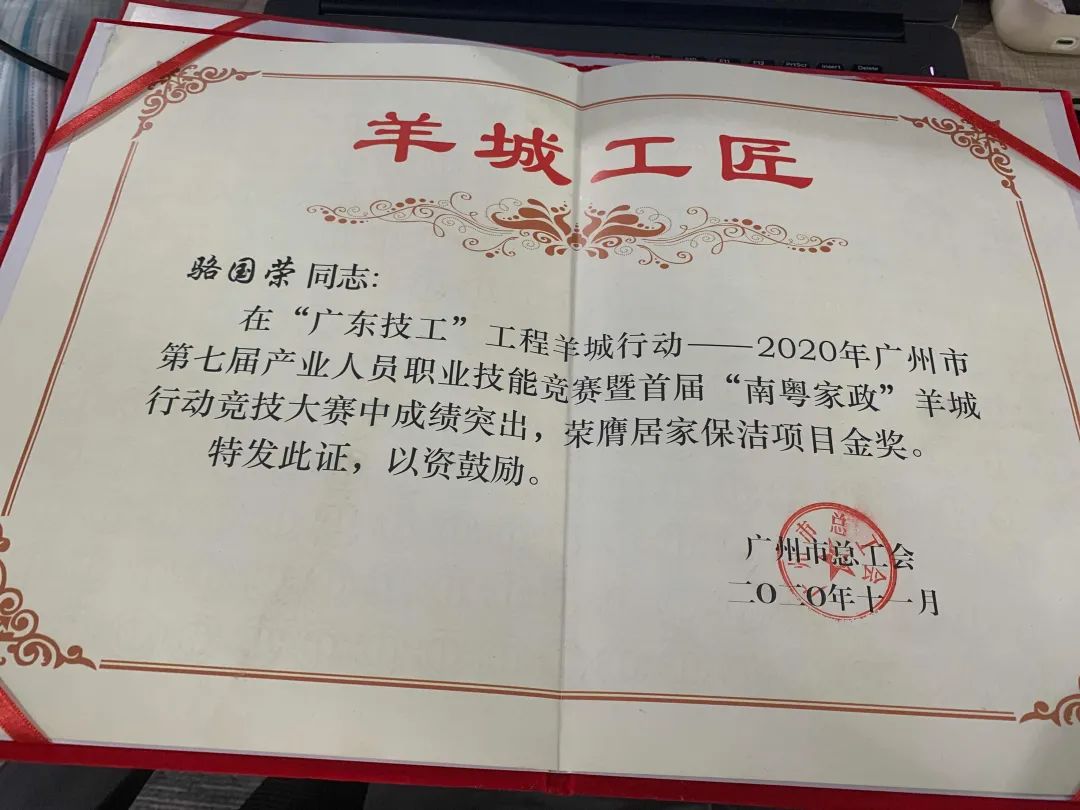 PrtScr Insert Delete
羊城工匠
骆国荣 同志：
在“广东技工”工程羊城行动——2020年广州市
第七届产业人员职业技能竞赛暨首届“南粤家政”羊城
行动竞技大赛中成绩突出，荣膺居家保洁项目金奖。
特发此证，以资鼓励。
广州市总工会
二〇二〇年十一月